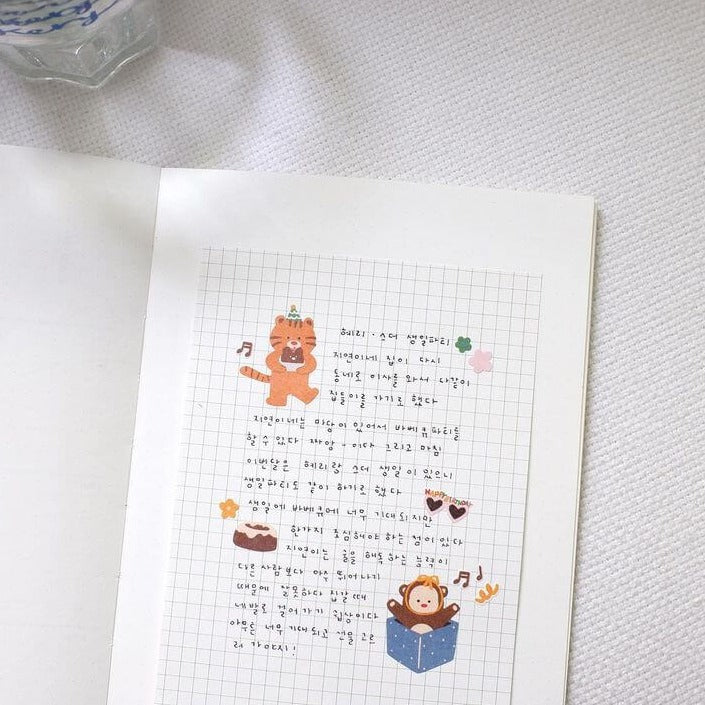 혜리 · 쏘더 생일파티
지연이네 집이 다시
동네로 이사를 와서 다같이
집들이를 가기로 했다
지연이네는 마당이 있어서 바베큐 파티를
할 수 있다 짜앙 - 이다 그리고 마침
이번달은 혜리랑 쏘더 생일이 있으니
생일파티도 같이 하기로 했다
HAPPY Birthday
생일에 바베큐에 너무 기대되지만
한가지 조심해야 하는 점이 있다
지연이는 술을 해독하는 능력이
다른 사람보다 아주 뛰어나기
때문에 잘못하다 집갈 때
네발로 걸어가기 쉽상이다
아무튼 너무 기대되고 선물 고르
러 가야지!